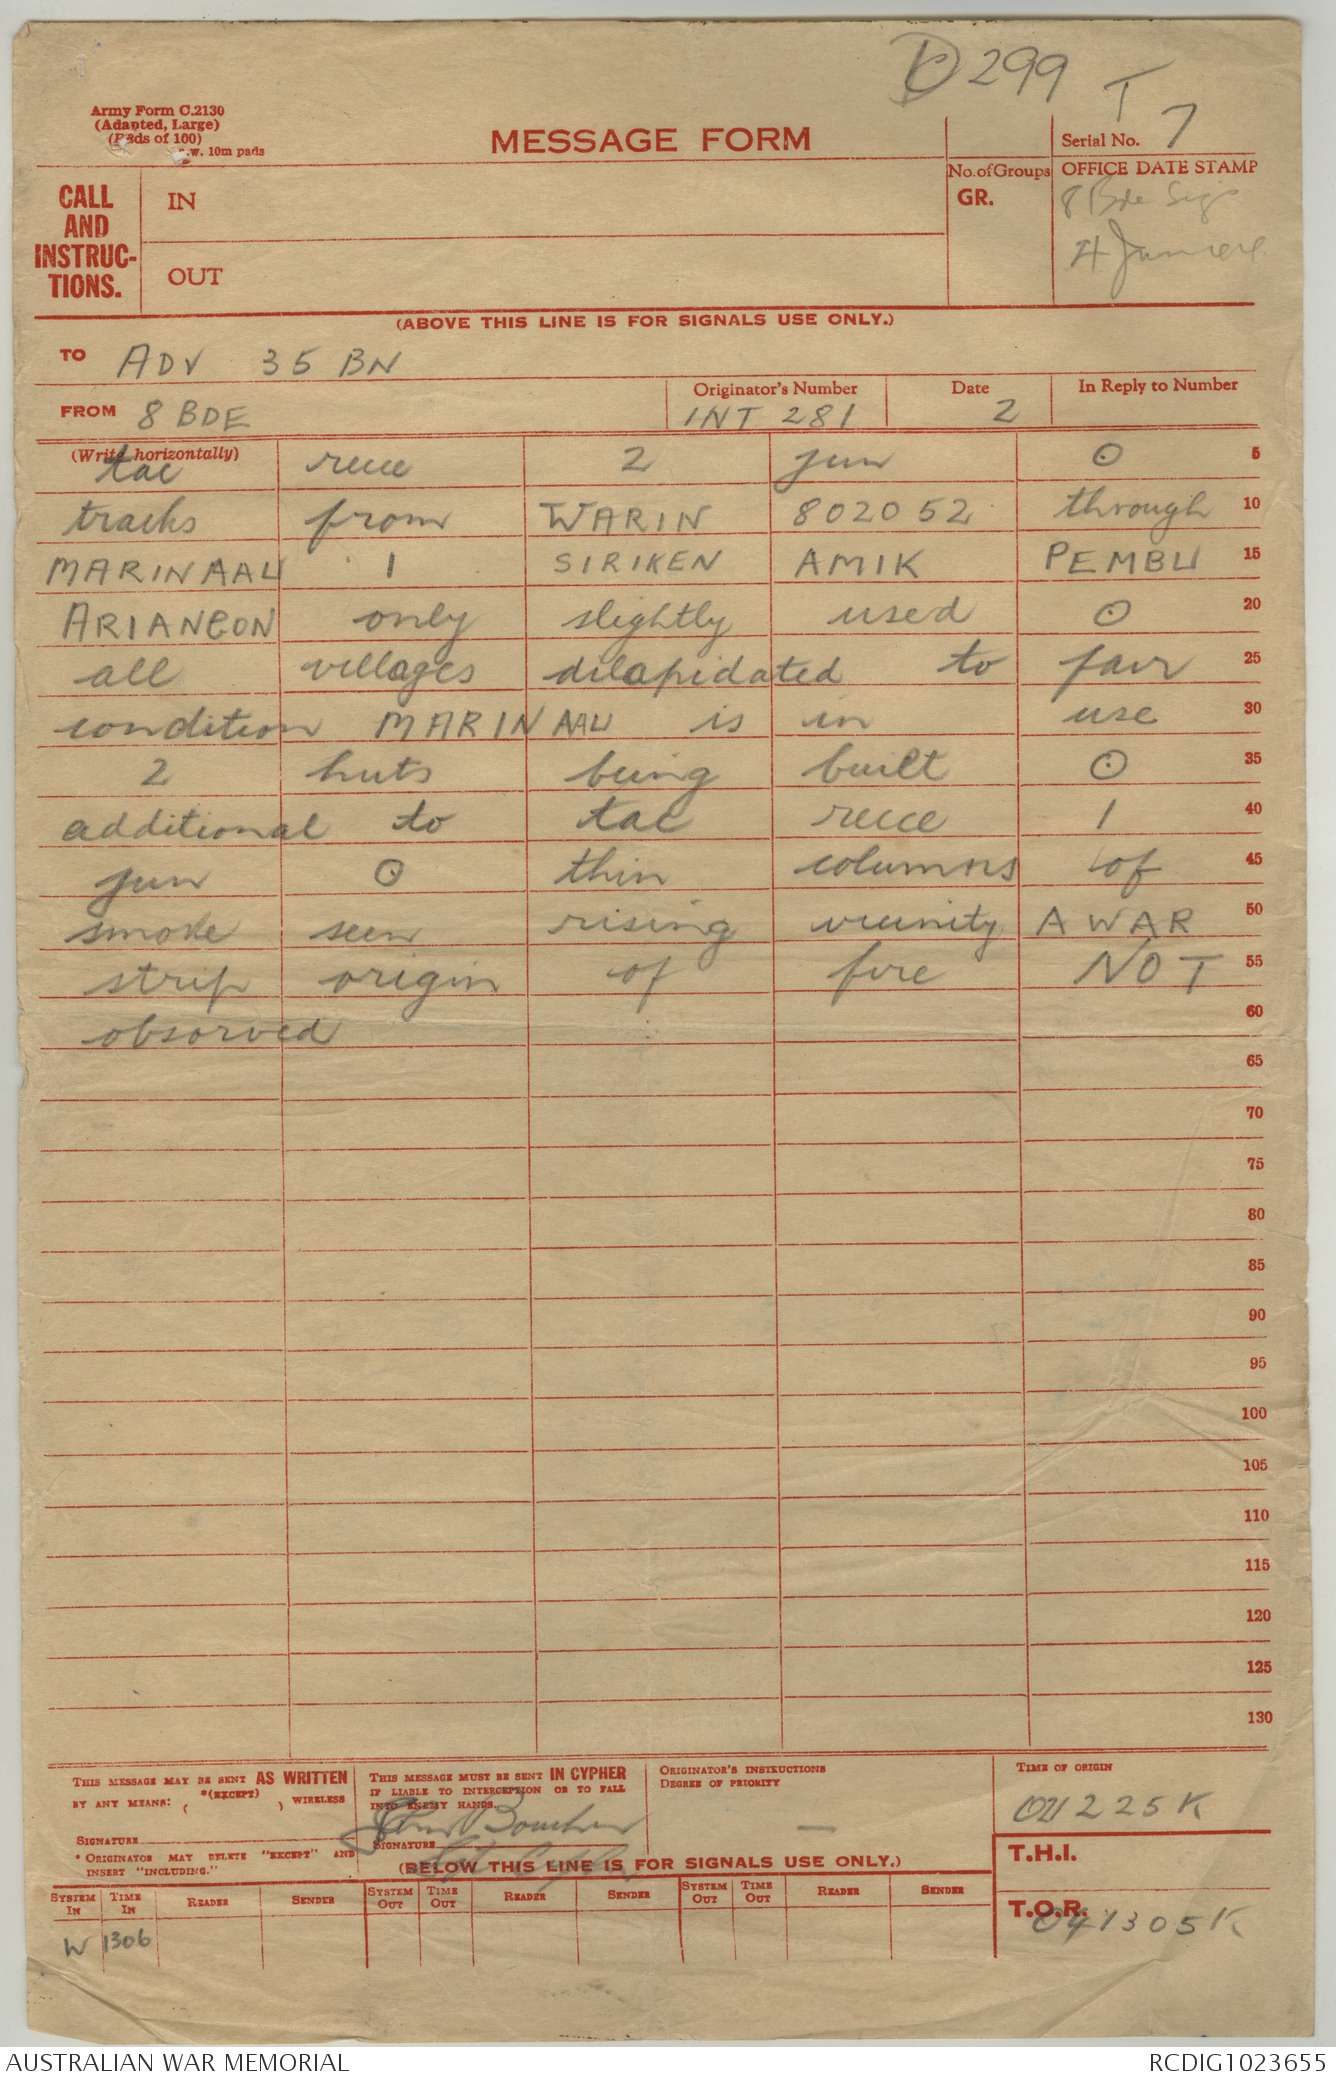 D 299
T
7
Army Form C.2130
(Adapted, Large)
(Pads of 100)
w. 10m pads
MESSAGE FORM
Serial No.
CALL
AND
INSTRUC-
TIONS.
IN
OUT
No. of Groups
GR.
OFFICE DATE STAMP
8 Bde Sigs
4 June
(ABOVE THIS LINE IS FOR SIGNALS USE ONLY.)
TO ADV 35 BN
FROM 8 BDE
Originator's Number
INT 281
Date
2
In Reply to Number
(Write horizontally)
tac recce 2 jun ⊙ 5
tracks from WARIN 802052 through 10
MARINAAU 1 SIRIKEN AMIK PEMBU 15
ARIANGON only slightly used ⊙ 20
all villages dilapidated to fair 25
condition MARINAAU is in use 30
2 huts being built ⊙ 35
additional to tac recce 1 40
jun ⊙ thin columns of 45
smoke seen rising vicinity AWAR 50
strip origin of fire NOT 55
obsorved 60
65
70
75
80
85
90
95
100
105
110
115
120
125
130
THIS MESSAGE MAY BE SENT AS WRITTEN
BY ANY MEANS: *(EXCEPT) ( ) WIRELESS
SIGNATURE
* ORIGINATOR MAY DELETE "EXCEPT" AND
INSERT "INCLUDING."
THIS MESSAGE MUST BE SENT IN CYPHER
IF LIABLE TO INTERCEPTION OR TO FALL
INTO ENEMY HANDS.
SIGNATURE
ORIGINATOR'S INSTRUCTIONS
DEGREE OF PRIORITY
—
TIME OF ORIGIN
041225K
T.H.I.
(BELOW THIS LINE IS FOR SIGNALS USE ONLY.)
SYSTEM IN TIME IN READER SENDER SYSTEM OUT TIME OUT READER SENDER SYSTEM OUT TIME OUT READER SENDER
T.O.R.
041305K
W 1306
AUSTRALIAN WAR MEMORIAL
RCDIG1023655